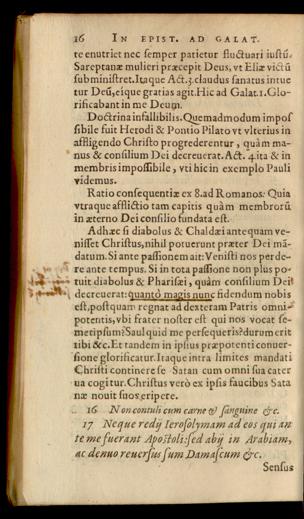 16 IN EPIST. AD GALAT.
te enutriet nec semper patietur fluctuari iustũ.
Sareptanæ mulieri præcepit Deus, vt Eliæ victũ
subministret. Itaque Act.3. claudus sanatus intue
tur Deũ, eique gratias agit. Hic ad Galat.1. Glo-
rificabant in me Deum.
Doctrina infallibilis. Quemadmodum impos
sibile fuit Herodi & Pontio Pilato vt vlterius in
affligendo Christo progrederentur, quàm ma-
nus & consilium Dei decreuerat. Act. 4. ita & in
membris impossibile, vti hic in exemplo Pauli
videmus.
Ratio consequentiæ ex 8. ad Romanos: Quia
vtraque afflictio tam capitis quàm membrorũ
in æterno Dei consilio fundata est.
Adhæc si diabolus & Chaldæi antequam ve-
nisset Christus, nihil potuerunt præter Dei mã-
datum. Si ante passionem ait: Venisti nos perde-
re ante tempus. Si in tota passione non plus po-
tuit diabolus & Pharisæi, quàm consilium Dei
decreuerat: quantò magis nunc fidendum nobis
est, postquam regnat ad dexteram Patris omni-
potentis, vbi frater noster est qui nos vocat se-
metipsum? Saul quid me persequeris? durum erit
tibi &c. Et tandem in ipsius præpotenti conuer-
sione glorificatur. Itaque intra limites mandati
Christi continere se Satan cum omni sua cater
ua cogitur. Christus verò ex ipsis faucibus Sata
næ nouit suos eripere.
16 Non contuli cum carne & sanguine &c.
17 Neque redij Ierosolymam ad eos qui an
te me fuerant Apostoli: sed abij in Arabiam,
ac denuo reuersus sum Damascum &c.
Sensus